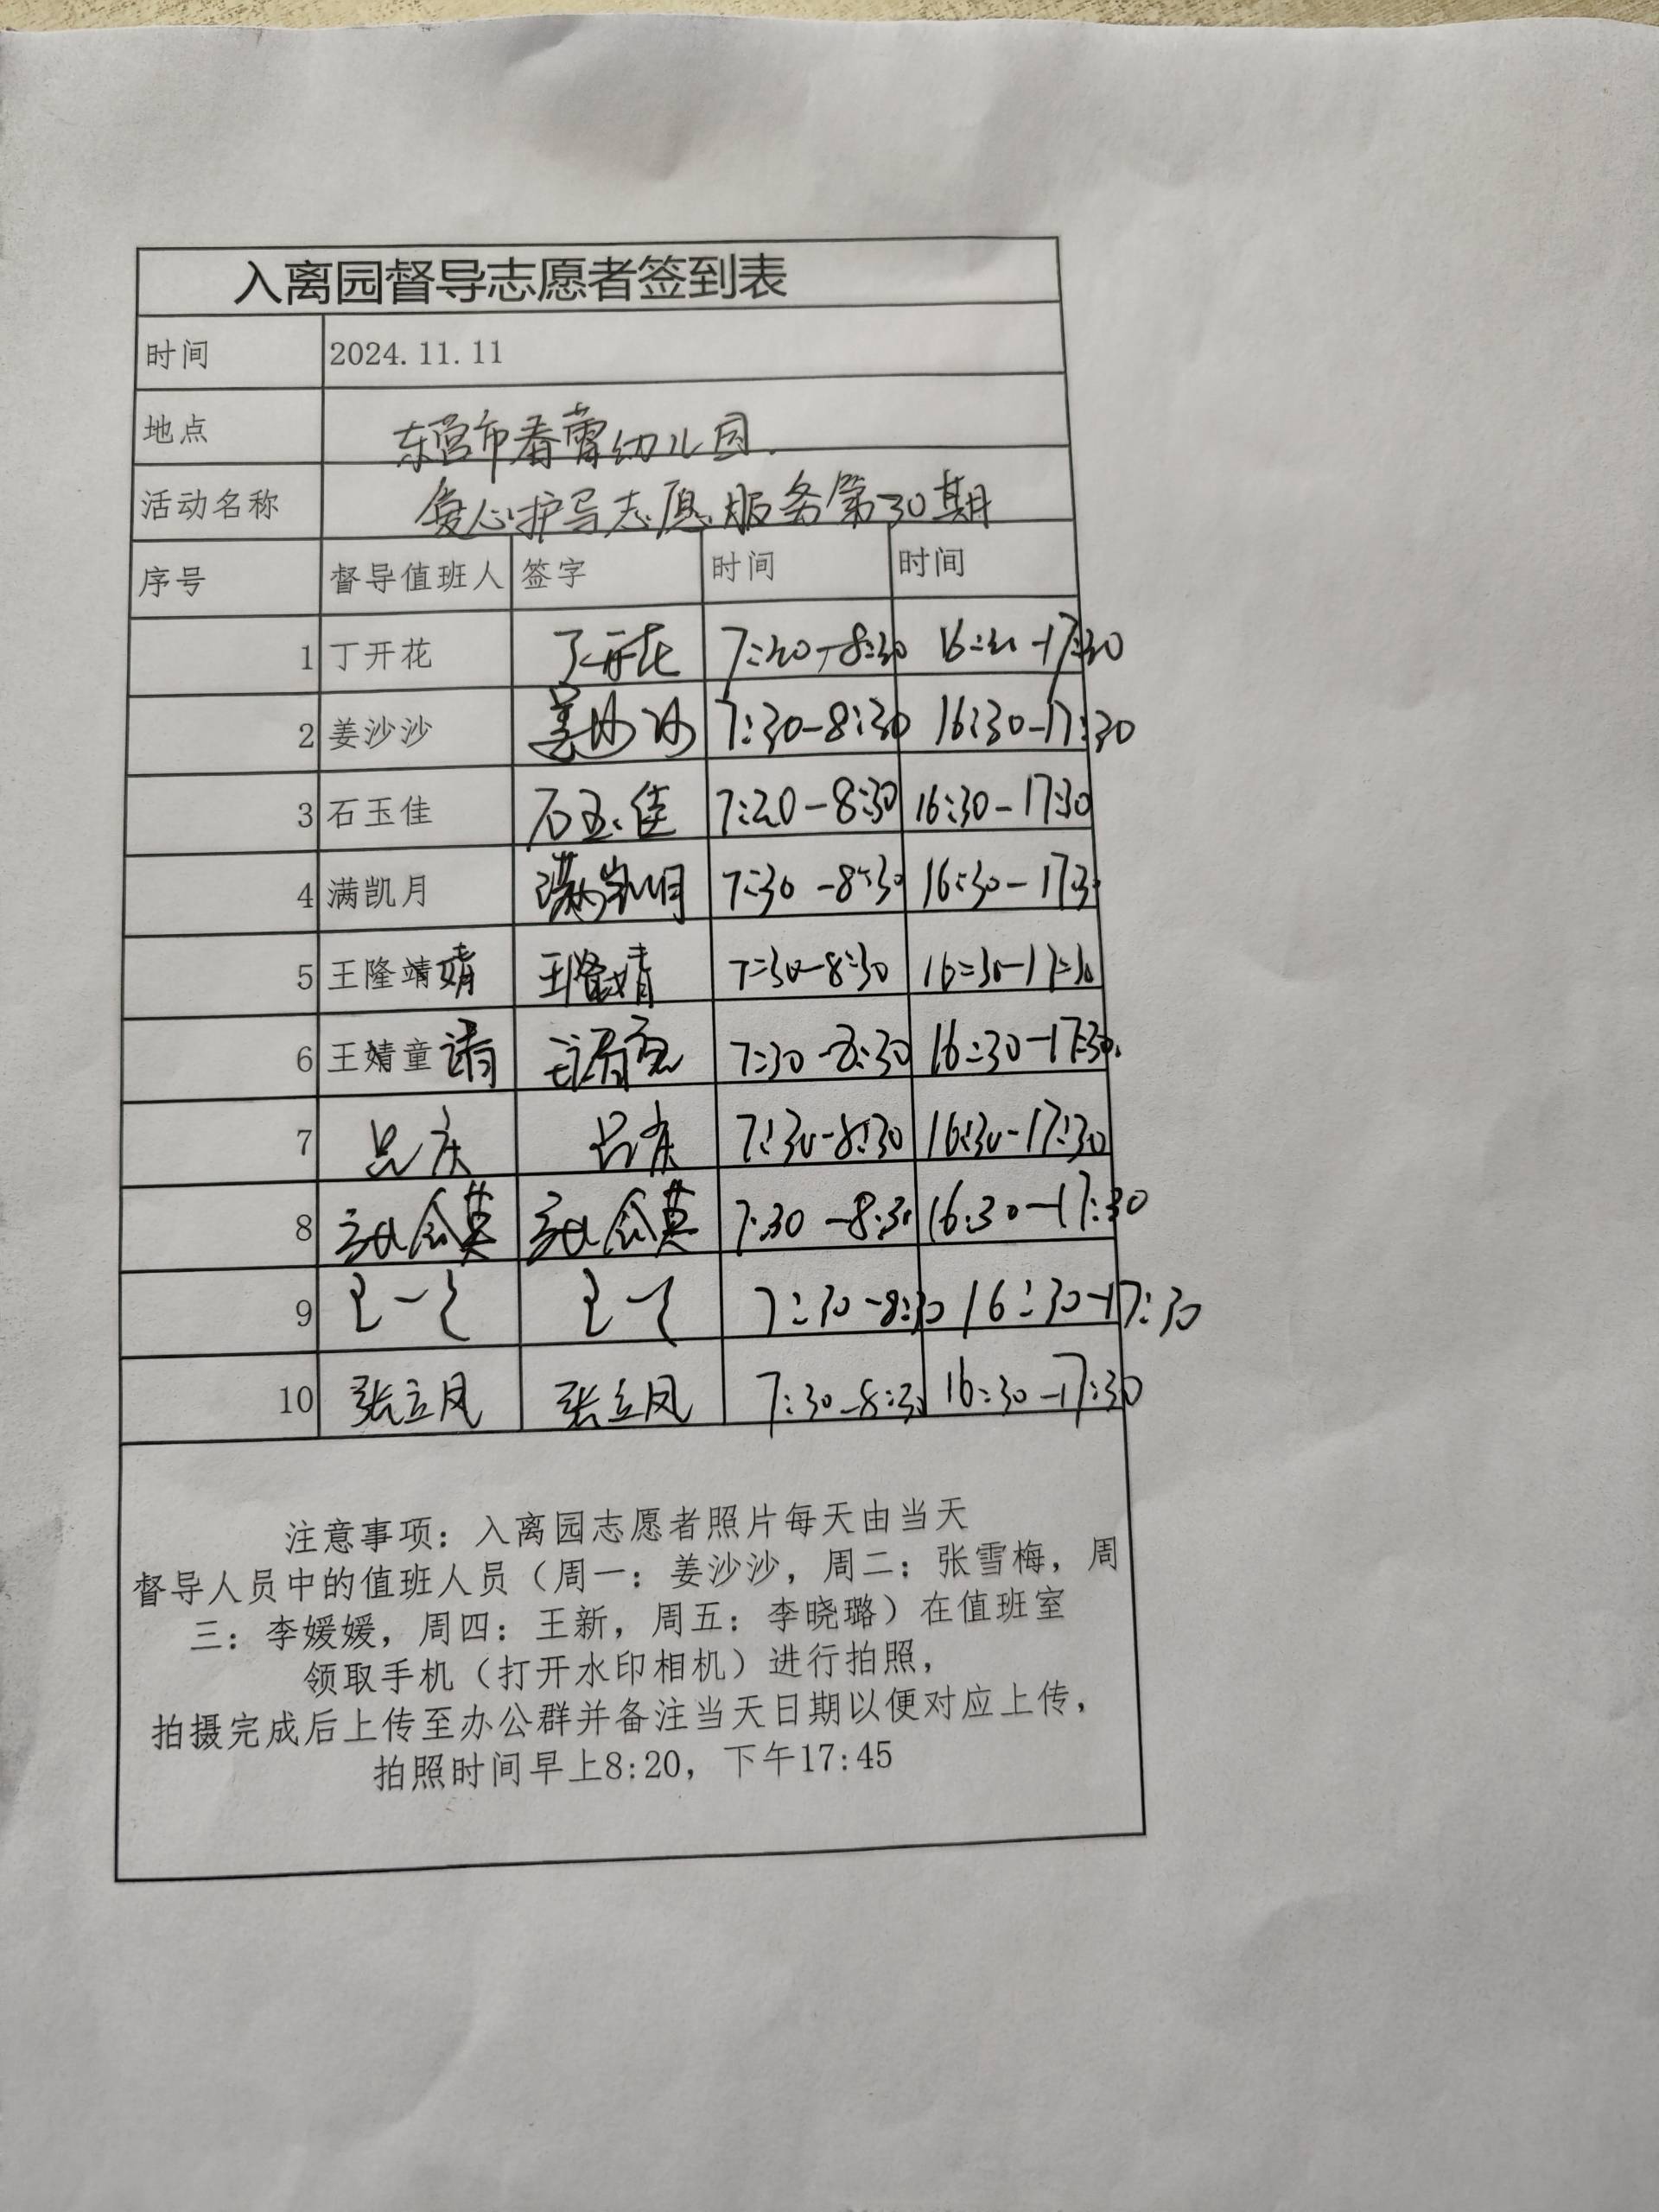 入离园督导志愿者签到表
时间 2024.11.11
地点 东营市春蕾幼儿园.
活动名称 爱心护导志愿服务第30期
序号 督导值班人 签字 时间 时间
1 丁开花 丁开花 7:30-8:30 16:30-17:30
2 姜沙沙 姜沙沙 7:30-8:30 16:30-17:30
3 石玉佳 石玉佳 7:20-8:30 16:30-17:30
4 满凯月 满凯月 7:30-8:30 16:30-17:30
5 王隆靖婧 王隆婧 7:30-8:30 16:30-17:30
6 王婧童请 王请童 7:30-8:30 16:30-17:30.
7 吕庆 吕庆 7:30-8:30 16:30-17:30
8 7:30-8:30 16:30-17:30
9 7:30-8:30 16:30-17:30
10 张立凤 张立凤 7:30-8:30 16:30-17:30
注意事项：入离园志愿者照片每天由当天
督导人员中的值班人员（周一：姜沙沙，周二；张雪梅，周
三：李媛媛，周四：王新，周五：李晓璐）在值班室
领取手机（打开水印相机）进行拍照，
拍摄完成后上传至办公群并备注当天日期以便对应上传，
拍照时间早上8:20，下午17:45